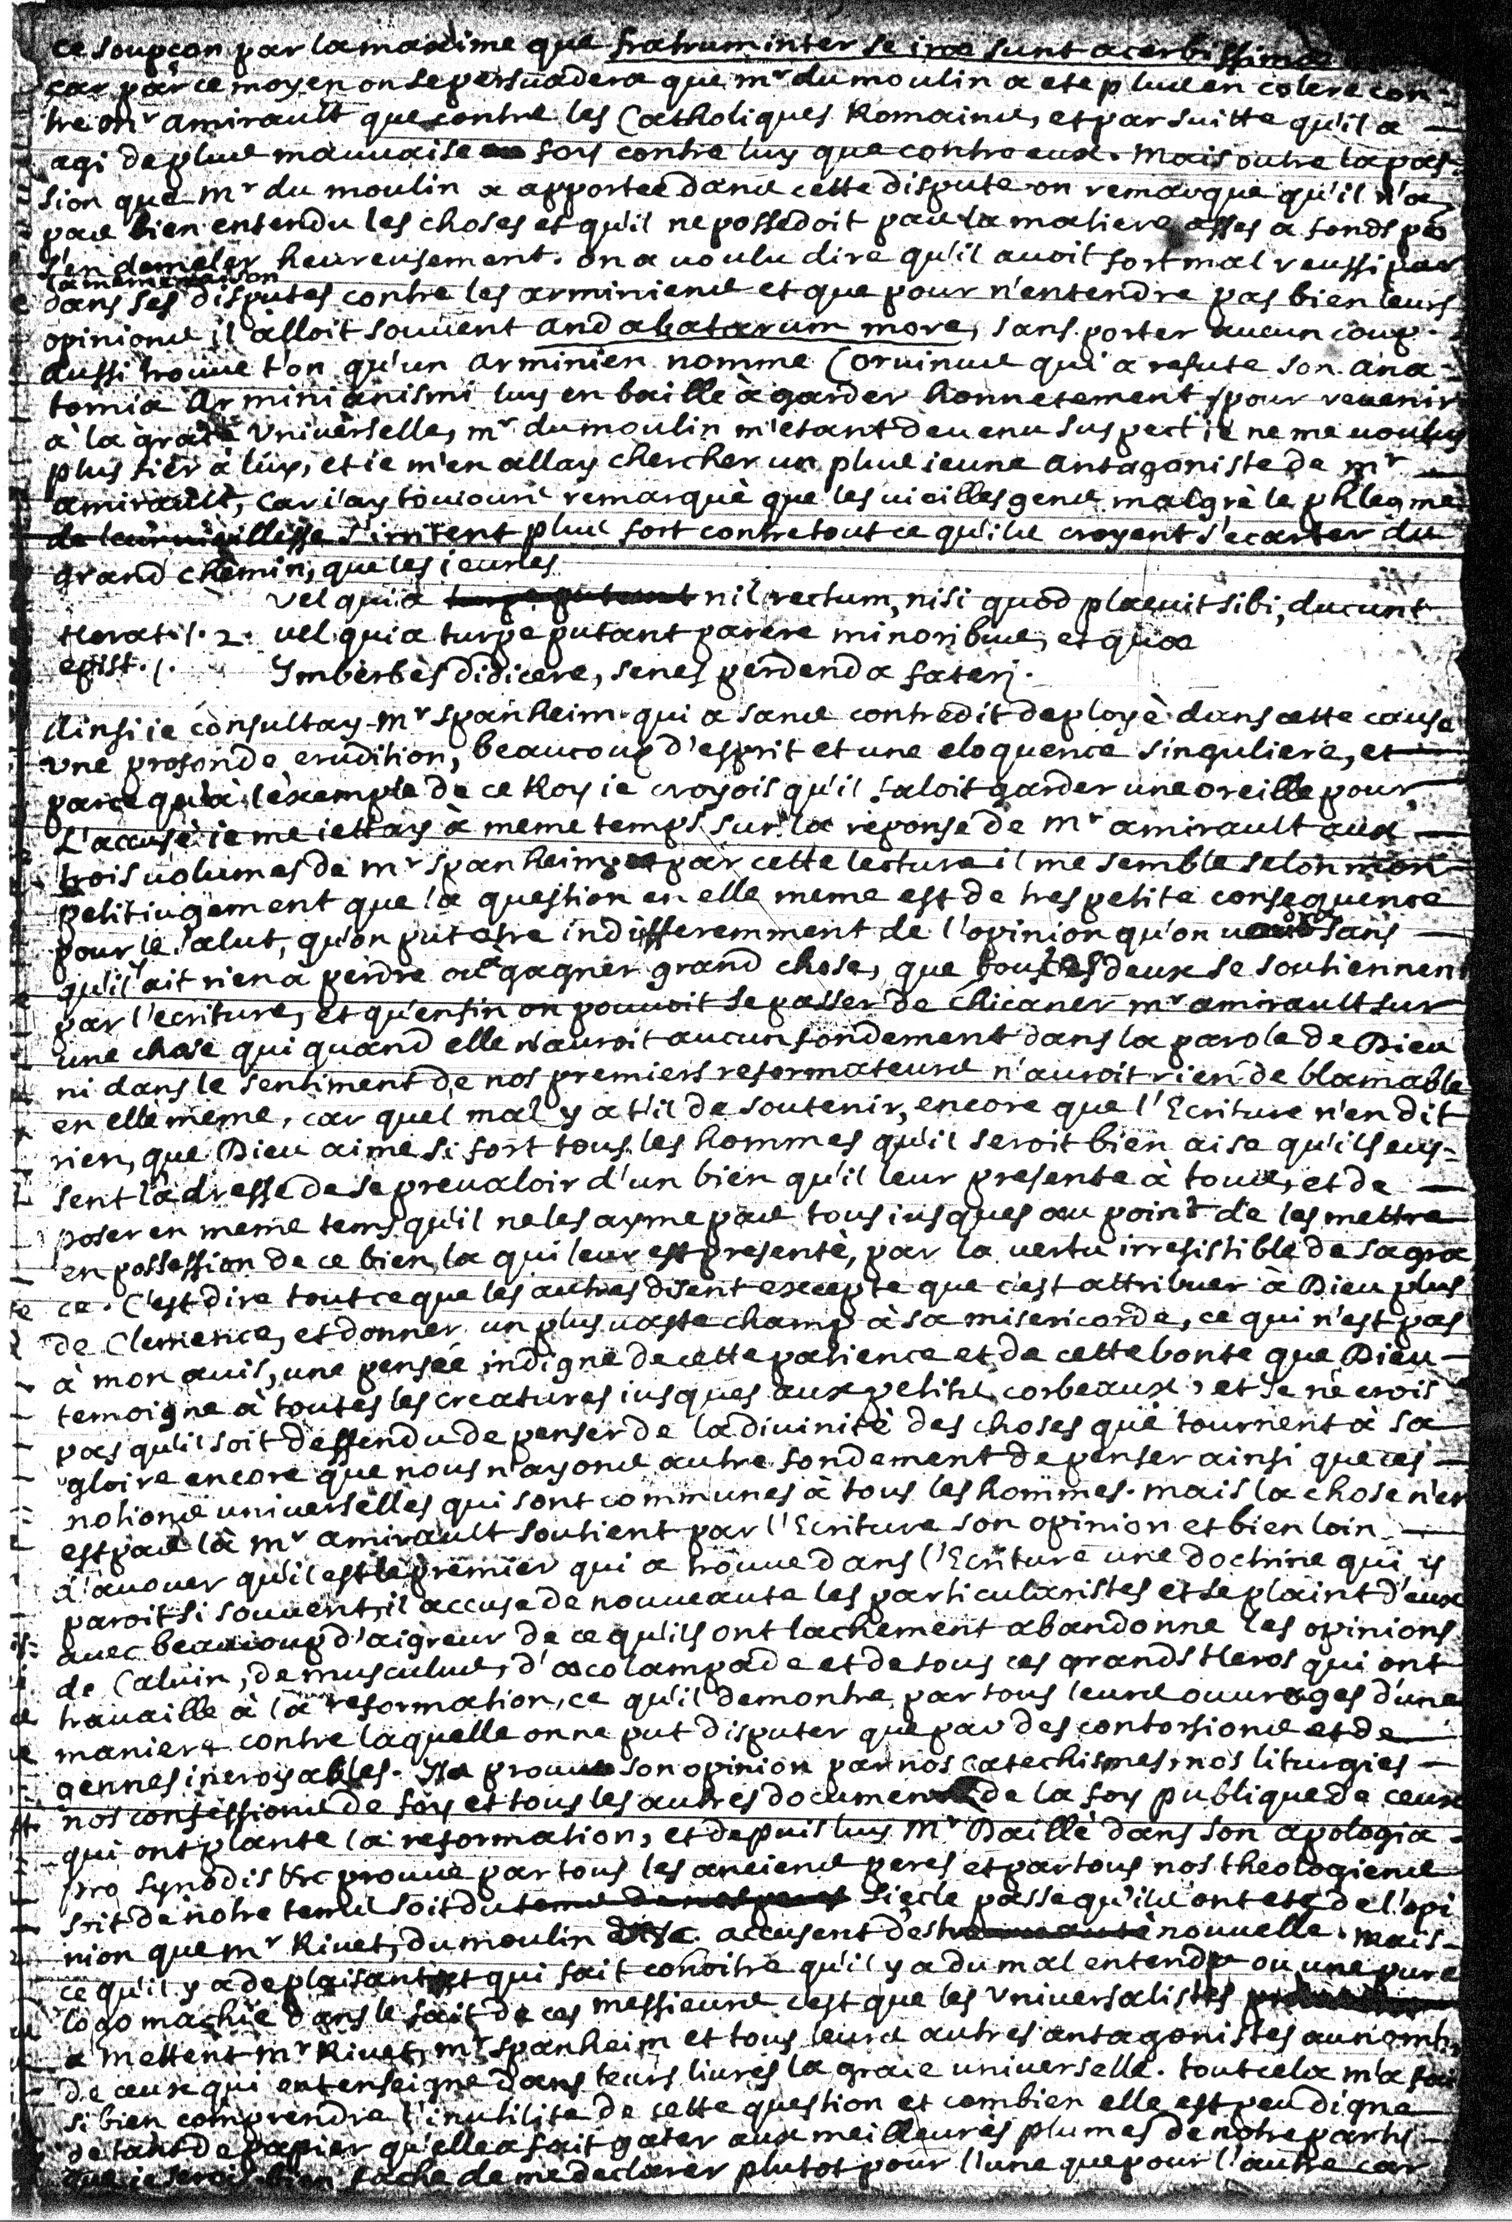 ce soupçon par la maxime que fratrum inter se irae sunt acerbissimae
car par ce moyen on se persuadera que mr du moulin a eté plus en colere con-
tre mr amirault que contre les Catholiques Romains, et par suitte qu'il a
agi de plus mauvaise foy contre luy que contre eux. Mais outre la pas-
sion que mr du moulin a apportée dans cette dispute on remarque qu'il n'a
pas bien entendu les choses et qu'il ne possedoit pas la matiere asses a fonds po
s'en demeler heureusement. on a voulu dire qu'il avoit fort mal reussi par
la meme raison
dans ses disputes contre les arminiens et que pour n'entendre pas bien leurs
opinions il alloit souvent andabatarum more, sans porter aucun coup.
Aussi trouve t'on qu'un Arminien nommé Corvinus qui a refuté son ana-
tomia Arminianismi luy en baille à garder honnetement, pour revenir
à la grace Universelle, mr du moulin m'etant devenu suspect ie ne me voulus
plus fier à luy, et ie m'en allay chercher un plus ieune antagoniste de mr
amirault, car i'ay touiours remarquè que les vieilles gens malgrè le phlegme
de leur vieillesse s'irritent plus fort contre tout ce qu'ils croyent s'ecarter du
grand chemin, que les ieunes
Vel quia nil rectum, nisi quod placuit sibi, ducunt
Horat. l. 2. vel quia turpe putant parere minoribus, et quae
epist. 1. Imberbes didicere, senes perdenda fateri.
Ainsi ie consultay mr Spanheim qui a sans contredit deployè dans cette cause
une profonde erudition, beaucoup d'esprit et une eloquence singuliere, et
parce qu'à l'exemple de ce Roy ie croyois qu'il faloit garder une oreille pour
L'accusé ie me iettay à meme temps sur la reponse de mr amirault aux
trois volumes de mr Spanheim, et par cette lecture il me semble selon mon
petit iugement que la question en elle meme est de tres petite consequence
pour le salut, qu'on put estre indifferemment de l'opinion qu'on voudra sans
qu'il y ait rien a perdre ou a gagner grand chose, que tous les deux se soutiennent
par l'ecriture, et qu'enfin on pouvoit se passer de chicaner mr amirault sur
une chose qui quand elle n'auroit aucun fondement dans la parole de Dieu
ni dans le sentiment de nos premiers reformateurs n'auroit rien de blamable
en elle meme, car quel mal y a t'il de soutenir, encore que l'Ecriture n'en dit
rien, que Dieu aime si fort tous les hommes qu'il seroit bien aise qu'ils eus-
sent l'adresse de se prevaloir d'un bien qu'il leur presente à tous, et de
poser en meme tems qu'il ne les ayme pas tous iusques au point de les mettre
en possession de ce bien la qui leur est presentè, par la vertu irresistible de sa gra
ce. C'est dire tout ce que les autres disent excepte que c'est attribuer à Dieu plus
de Clemence, et donner un plus vaste champ à sa misericorde, ce qui n'est pas
à mon avis, une pensée indigne de cette patience et de cette bonte que Dieu
temoigne à toutes les creatures iusques aux petits corbeaux, et ie ne crois
pas qu'il soit deffendu de penser de la divinitè des choses que tournent à sa
gloire encore que nous n'ayons autre fondement de penser ainsi que ces
notions universelles qui sont communes à tous les hommes. mais la chose n'en
est pas là mr amirault soutient par l'Ecriture son opinion et bien loin
d'avouer qu'il est le premier qui a trouve dans l'Ecriture une doctrine qui y
paroit si souvent, il accuse de nouveaute les particularistes et se plaint d'eux
avec beaucoup d'aigreur de ce qu'ils ont lachement abandonne les opinions
de Calvin, de musculus, d'oecolampade et de tous ces grands Heros qui ont
travaille à la reformation, ce qu'il demontre par tous leurs ouvrages d'une
maniere contre laquelle on ne put disputer que par des contorsions et de
gennes incroyables. Il prouve son opinion par nos catechismes, nos liturgies
nos confessions de foy et tous les autres documens de la foy publique de ceux
qui ont plante la reformation, et depuis luy Mr Daillè dans son apologia
pro Synodis &c prouve par tous les anciens peres et par tous nos theologiens
soit de notre tems soit du siecle passe qu'ils ont ete de l'opi
nion que mr Rivet, du moulin &c. accusent d'estre nouvelle. mais
ce qu'il y a de plaisant et qui fait conoitre qu'il y a du mal entendu ou une pure
logomachie dans le fait de ces messieurs c'est que les Universalistes
mettent mr Rivet, mr Spanheim et tous leurs autres antagonistes au nomb
de ceux qui ont enseigne dans leurs livres la grace universelle. tout cela m'a fai
si bien comprendre l'inutilite de cette question et combien elle est peu digne
de tant de papier qu'elle a fait gater aux meilleures plumes de notre party
que ie serois bien fache de me declarer plutot pour l'une que pour l'autre car